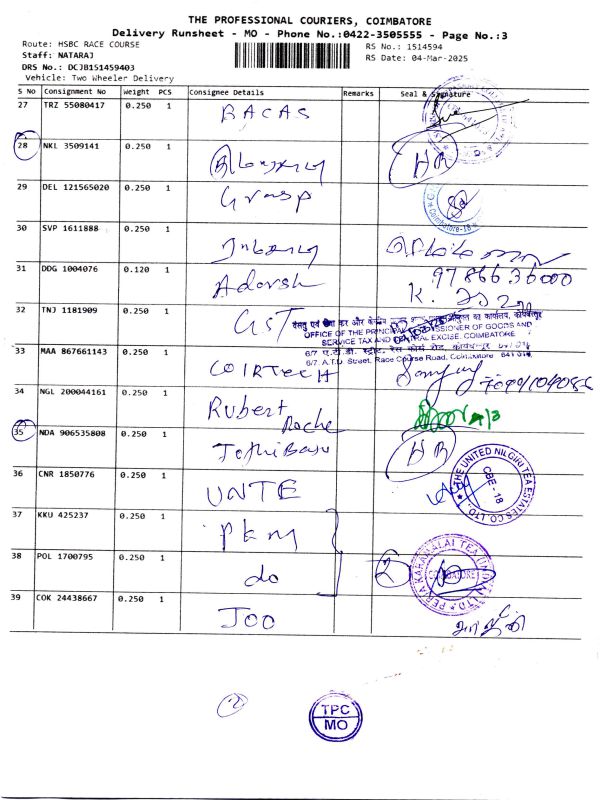 THE PROFESSIONAL COURIERS, COIMBATORE
Delivery Runsheet - MO - Phone No.:0422-3505555 - Page No.:3
Route: HSBC RACE COURSE
RS No.: 1514594
Staff: NATARAJ
RS Date: 04-Mar-2025
DRS No.: DCJB151459403
Vehicle: Two Wheeler Delivery
S No Consignment No Weight PCS Consignee Details Remarks Seal & Signature
27 TRZ 55080417 0.250 1 BACAS
28 NKL 3509141 0.250 1 HR
29 DEL 121565020 0.250 1 Grasp
Coimbatore-18
30 SVP 1611888 0.250 1
9786636000
31 DDG 1004076 0.120 1 Adarsh
32 TNJ 1181909 0.250 1 GST
OFFICE OF THE PRINCIPAL COMMISSIONER OF GOODS AND
SERVICE TAX AND CENTRAL EXCISE, COIMBATORE
6/7, A.T.D. Street, Race Course Road, Coimbatore 641 018.
33 MAA 867661143 0.250 1 COIRTECH
34 NGL 200044161 0.250 1 Rubert Roche
35 NDA 906535808 0.250 1 Jothibasu HR
36 CNR 1850776 0.250 1 UNTE
THE UNITED NILGIRI TEA ESTATES CO. LTD.
CBE - 18
37 KKU 425237 0.250 1 PKM
38 POL 1700795 0.250 1 do 2
39 COK 24438667 0.250 1 JOO
2
TPC
MO